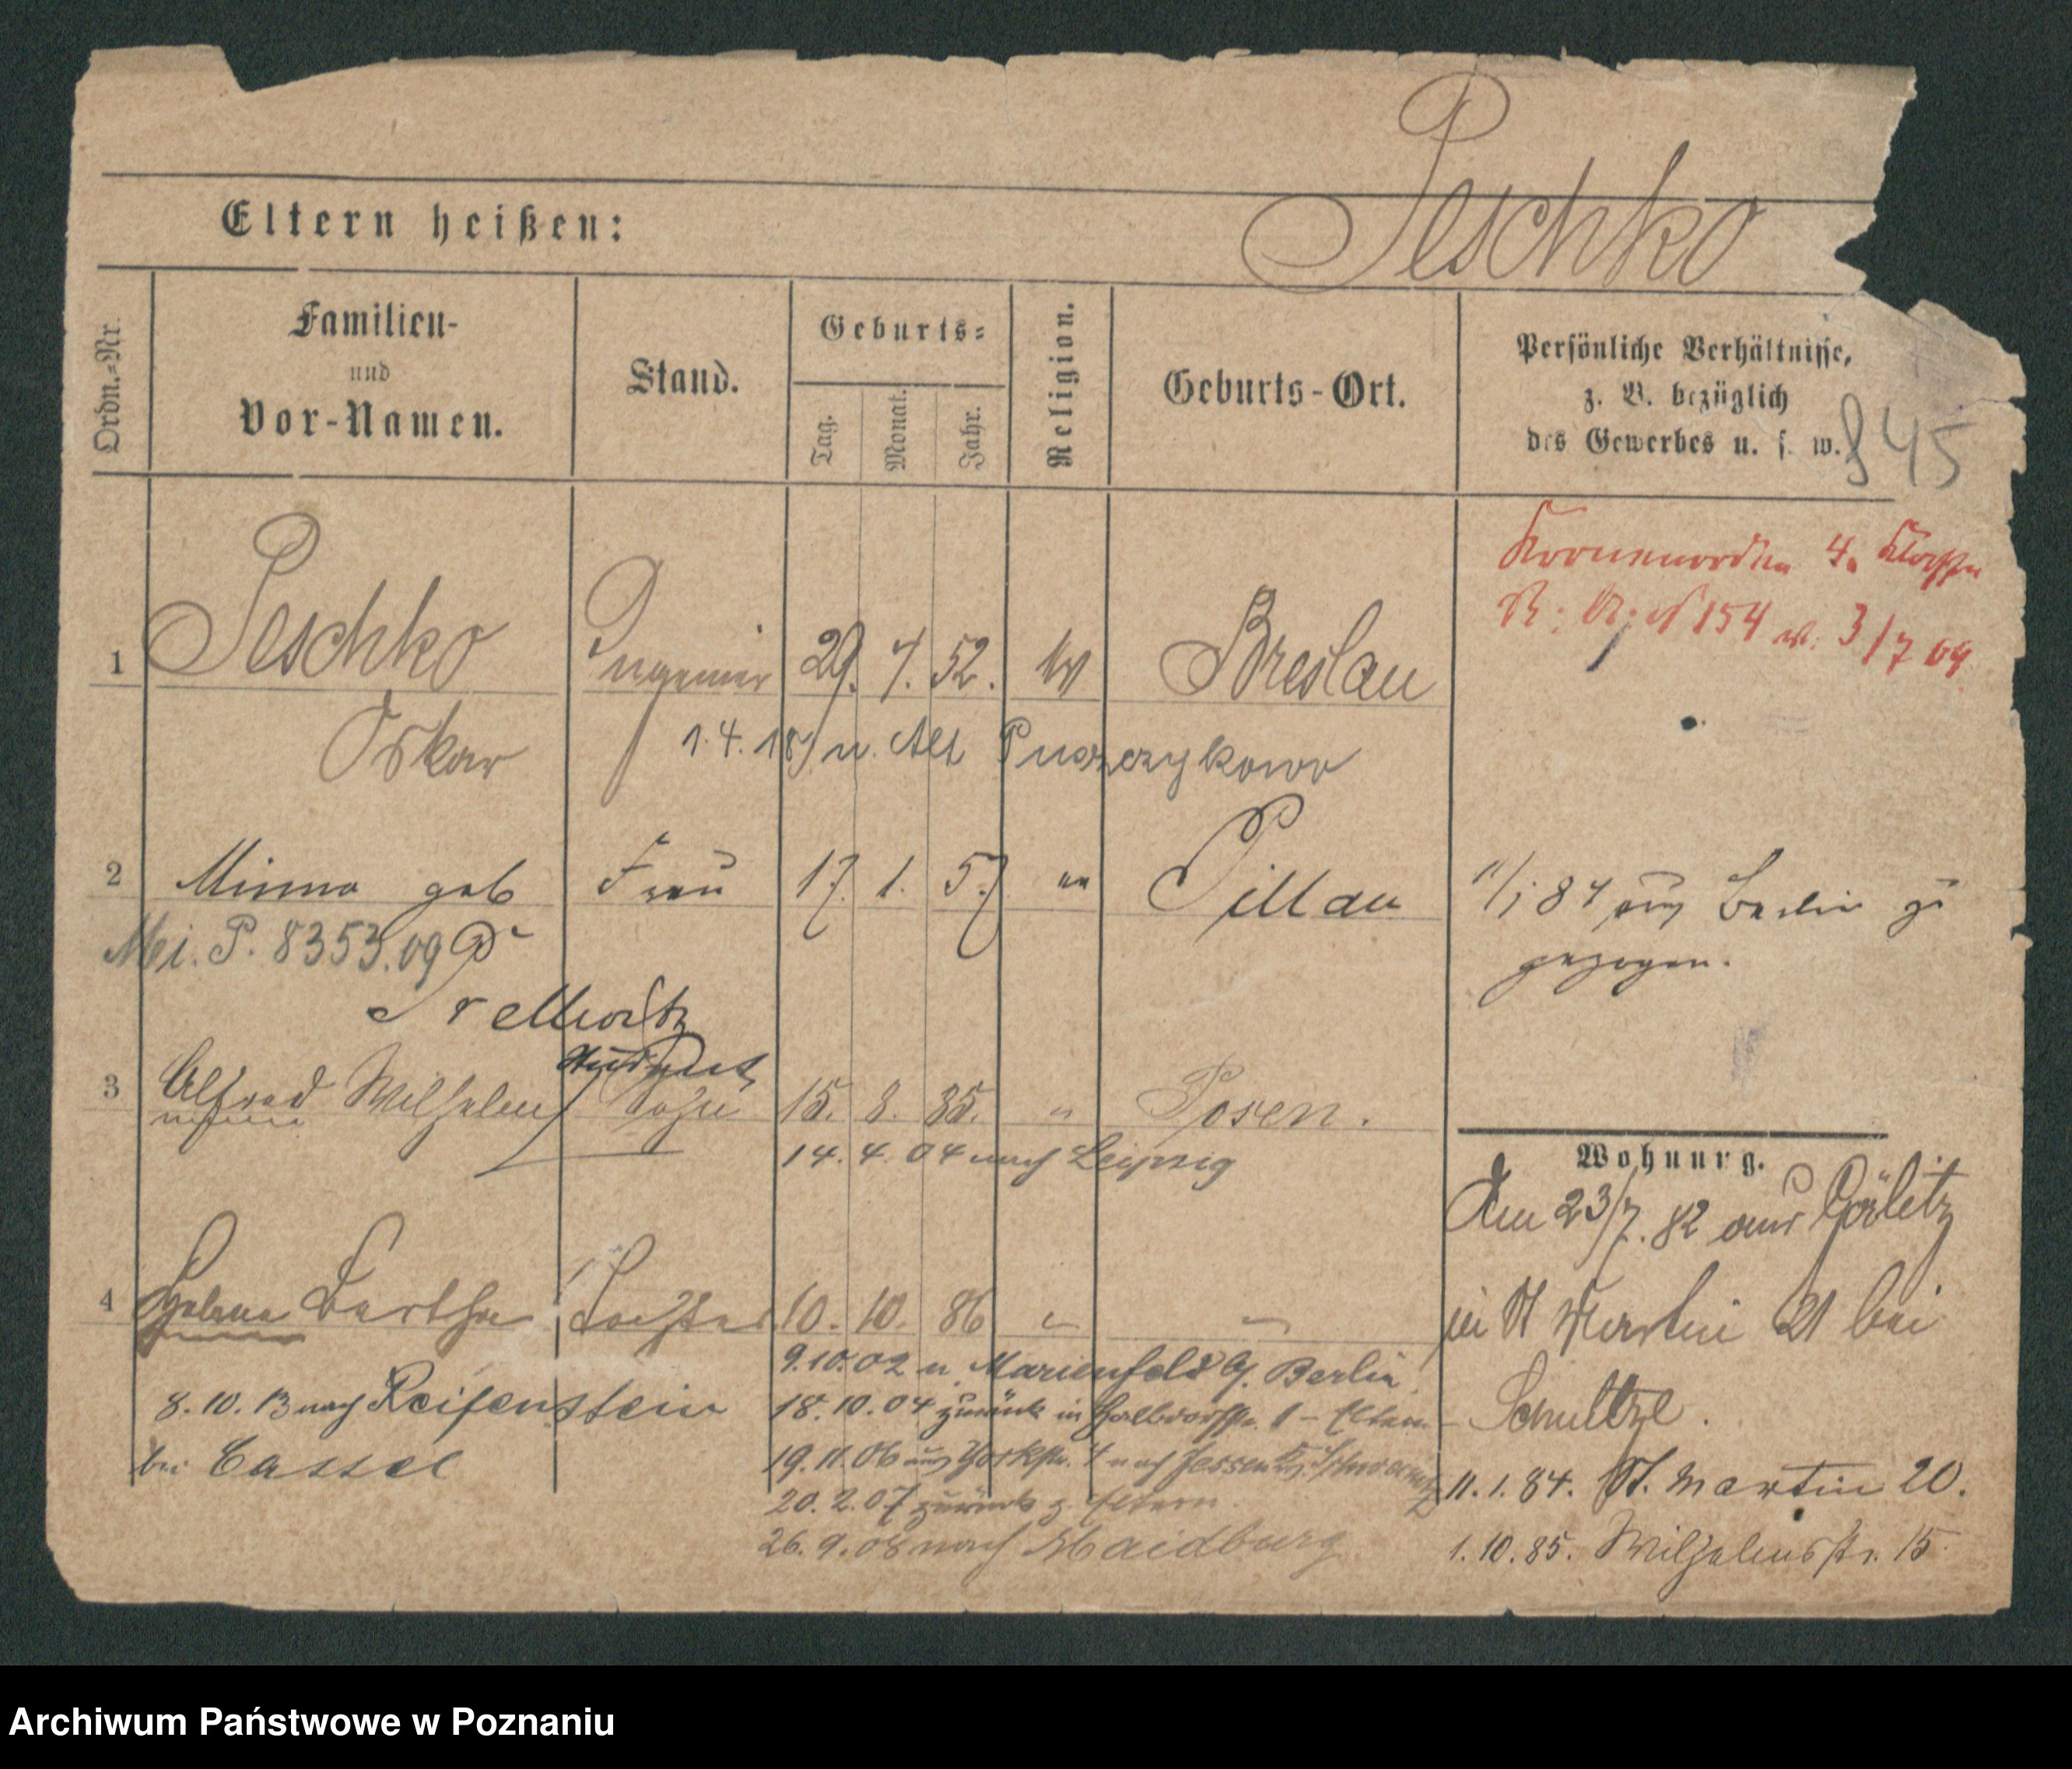 Peschko
Eltern heißen:
Ordn.-Nr.
Familien-
und
Vor-Namen.
Stand.
Geburts-
Tag.
Monat.
Jahr.
Religion.
Geburts-Ort.
Persönliche Verhältnisse,
z. B. bezüglich
des Gewerbes u. s. w.
§ 45
Kronenorden 4. Klasse
154 v. 3/7 09
1 Peschko Ingenieur 29. 7. 52. ev Breslau
Oskar
1.4.18 n. Alt Puszczykowo
2 Minna geb Frau 17. 1. 57 " Pillau
11/1 84 aus Berlin zu
gezogen.
Mei. P. 8353.09
Prellwitz
Student
3 Alfred Wilhelm Sohn 15. 8. 85. " Posen.
14. 4. 04 nach Leipzig
4 Helene Bertha Tochter 10. 10. 86 " "
9.10.02 n. Marienfeld b. Berlin
8. 10. 13 nach Reifenstein
bei Cassel
18.10.04 zurück in 1 - Eltern
19.11.06 aus Yorkstr. 4 nach
20. 2. 07 zurück z Eltern.
26. 9. 08 nach Maidburg
Wohnung.
Am 23/7. 82 aus Görlitz
in St Martin 21 bei
Schultze.
11. 1. 84. St. Martin 20.
1. 10. 85. Wilhelmstr. 15
Archiwum Państwowe w Poznaniu